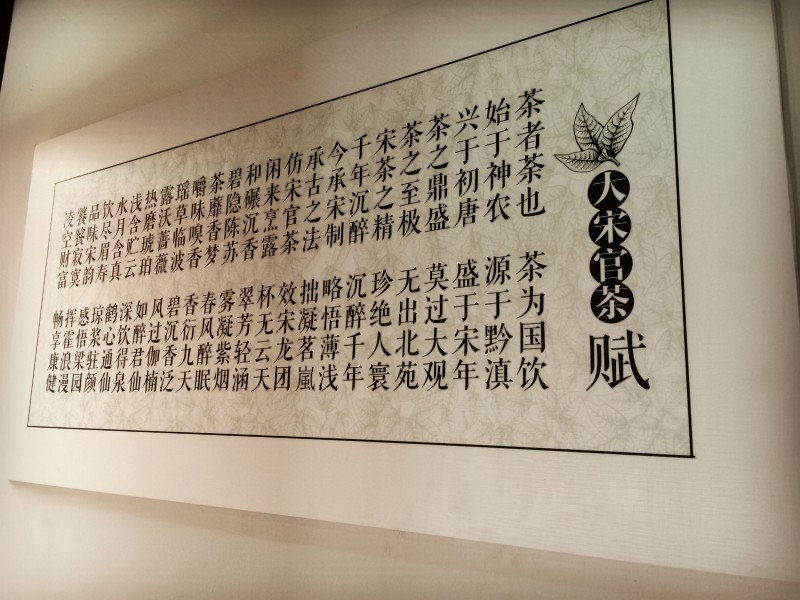 大宋官茶赋
茶者茶也 茶为国饮
始于神农 源于黔滇
兴于初唐 盛于宋年
茶之鼎盛 莫过大观
茶之至极 无出北苑
宋茶之精 珍绝人寰
千年沉醉 沉醉千年
今承宋制 略悟薄浅
承古之法 拙凝茗嵐
仿宋官茶 效宋龙团
闲来烹露 杯无云天
和碾沉香 翠芳轻涵
碧隐陈苏 雾凝紫烟
茶蘼香梦 春风醉眠
嚼味嗅香 香衍九天
瑶草临波 碧沉香泛
露沃蔷薇 风过伽楠
热磨琥珀 如醉君仙
浅含贮云 深饮得泉
水月含真 鹤心通仙
饮尽眉寿 琼浆驻颜
品味宋韵 感悟梁园
饕餮寂寞 挥霍浪漫
凌空财富 畅享康健